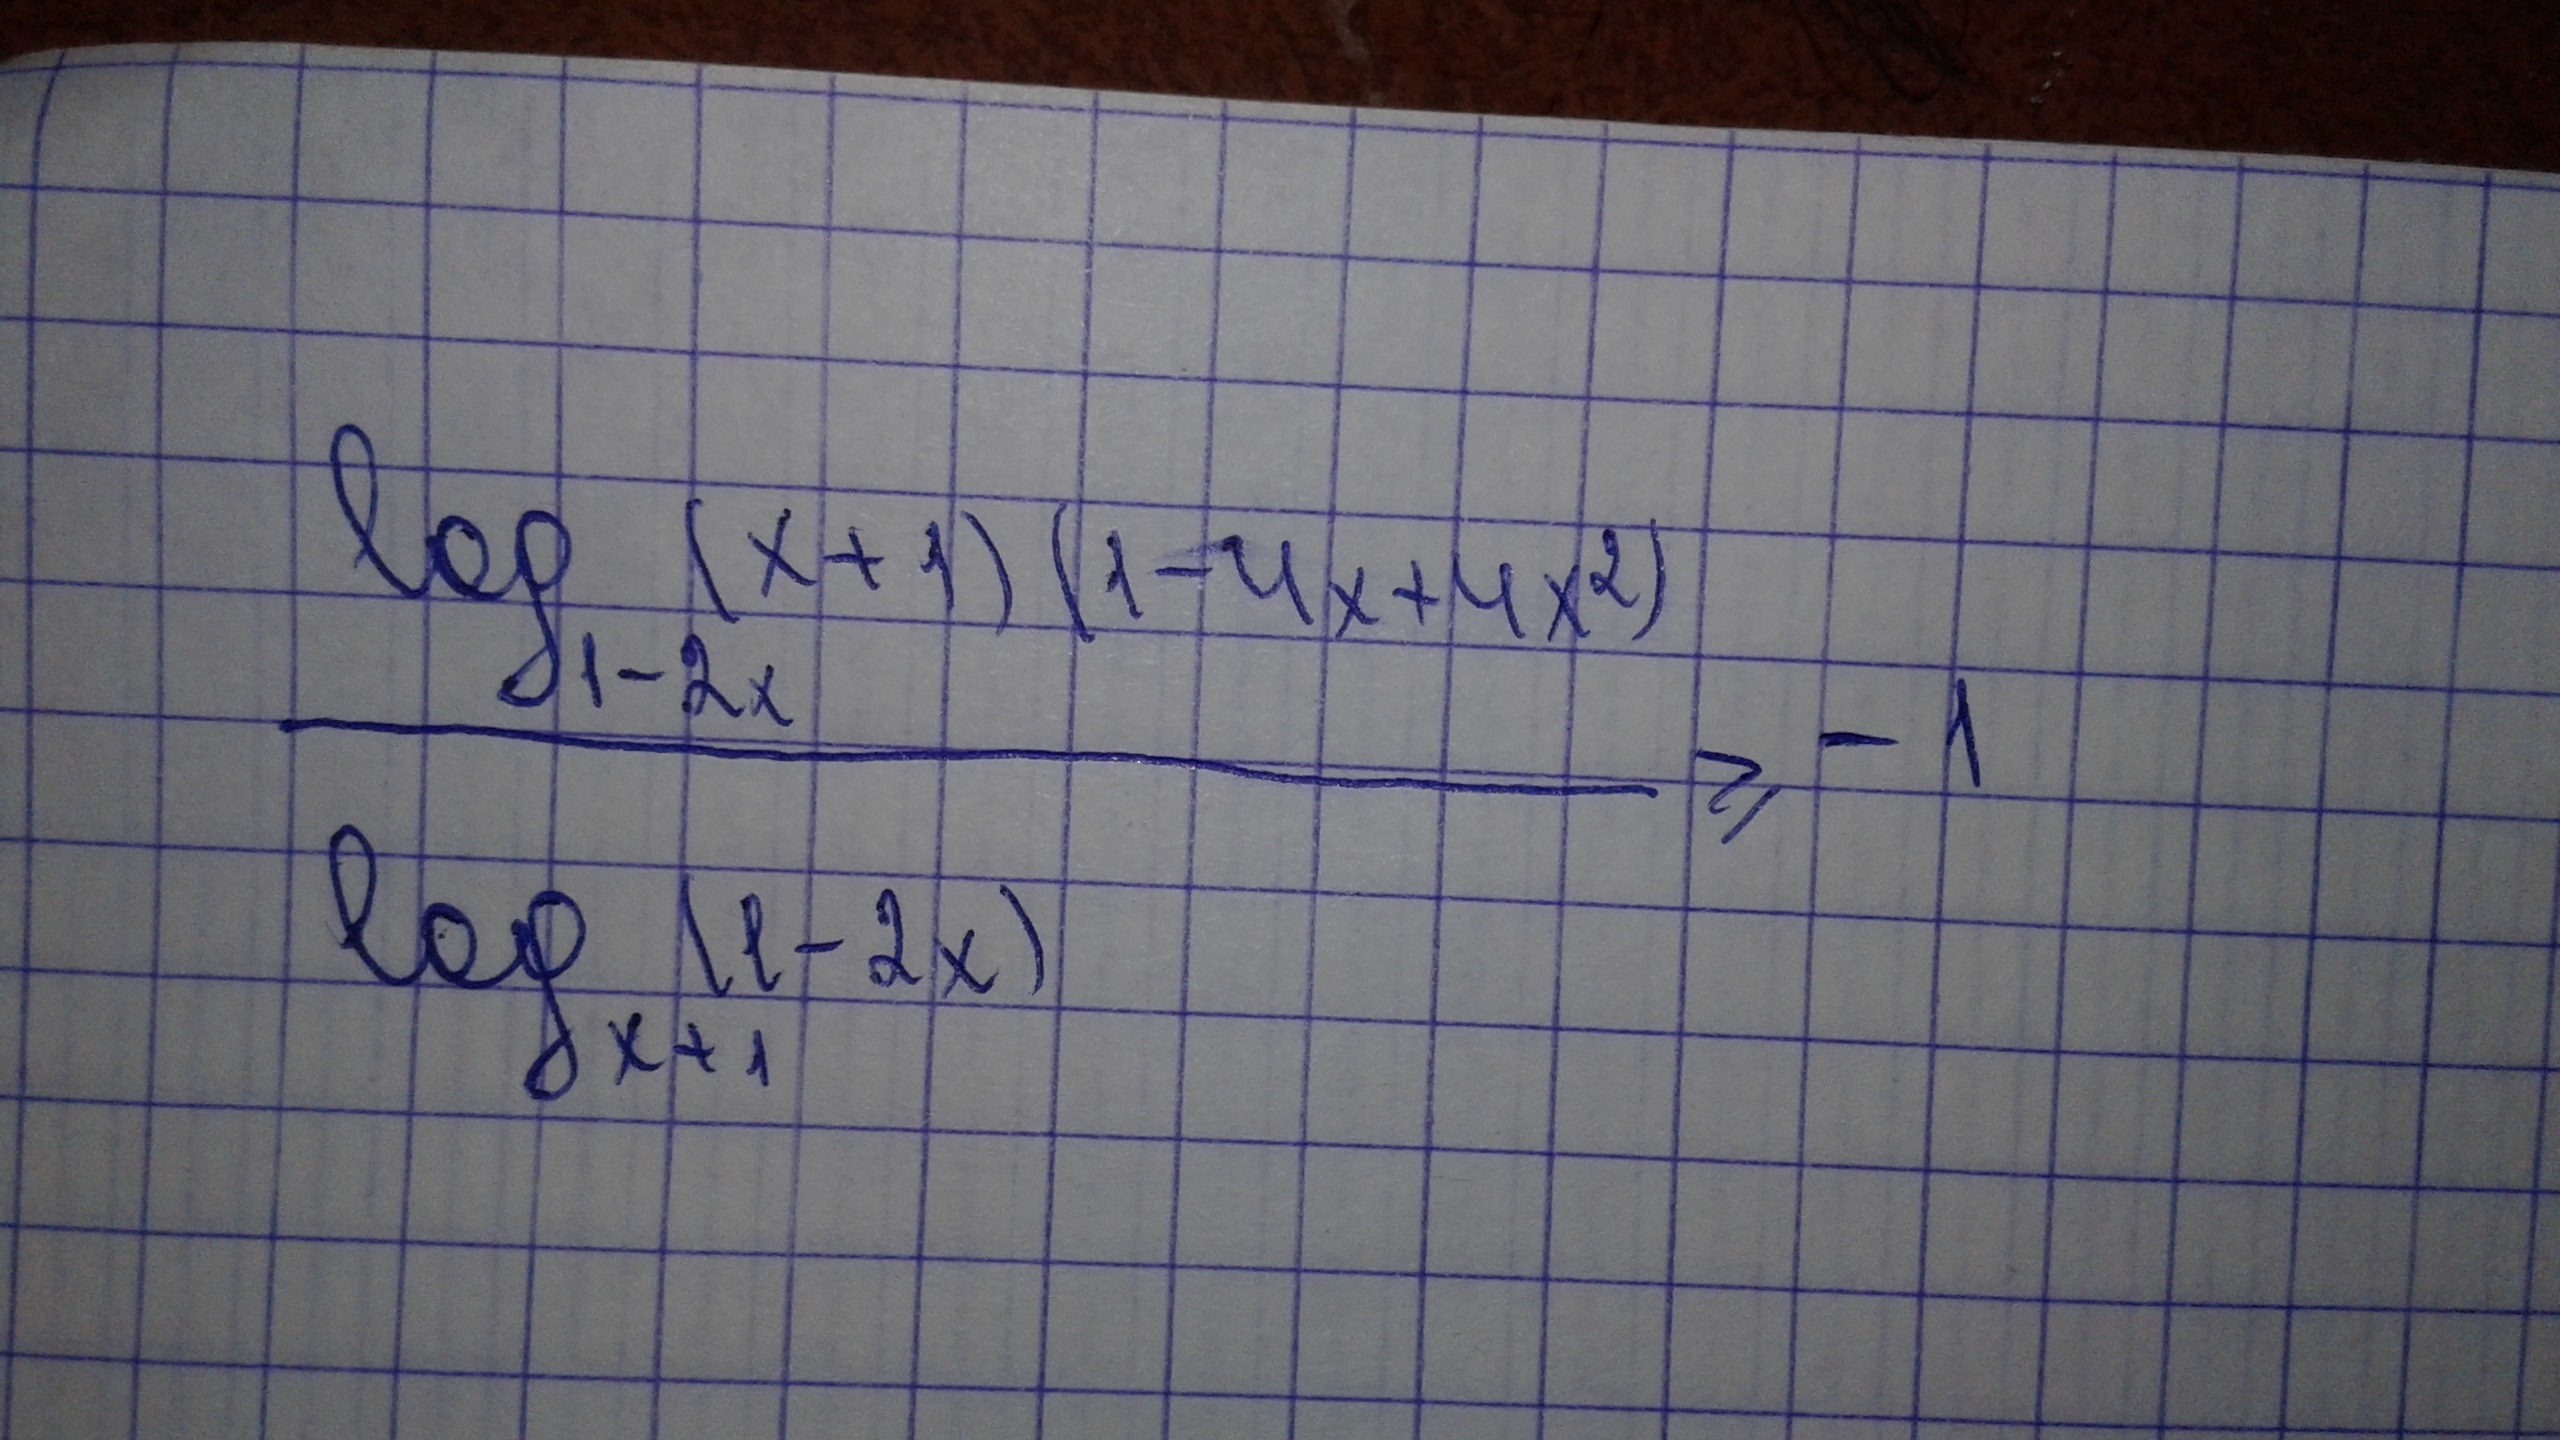 log₁₋₂ₓ (x+1)(1-4x+4x²)
≥ -1
logₓ₊₁ (1-2x)